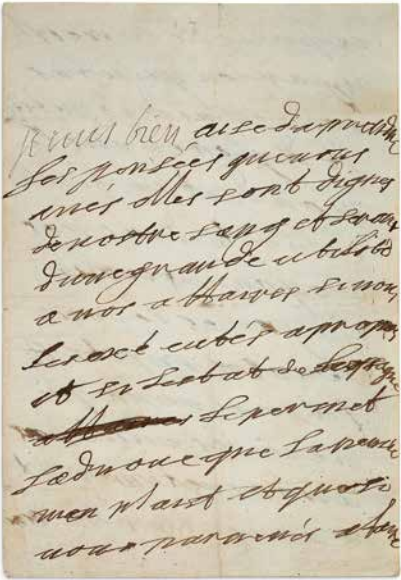 je suis bien aise daprendre
les pensées que vous
avés elles sont dignes
de vostre sang et seront
dune grande utilité
a nos affaires si vous
les executés a propos
et si lestat de lespagne
affaires le permet
jadvoue que la pensée
men plaist et que si
vous parvenés a